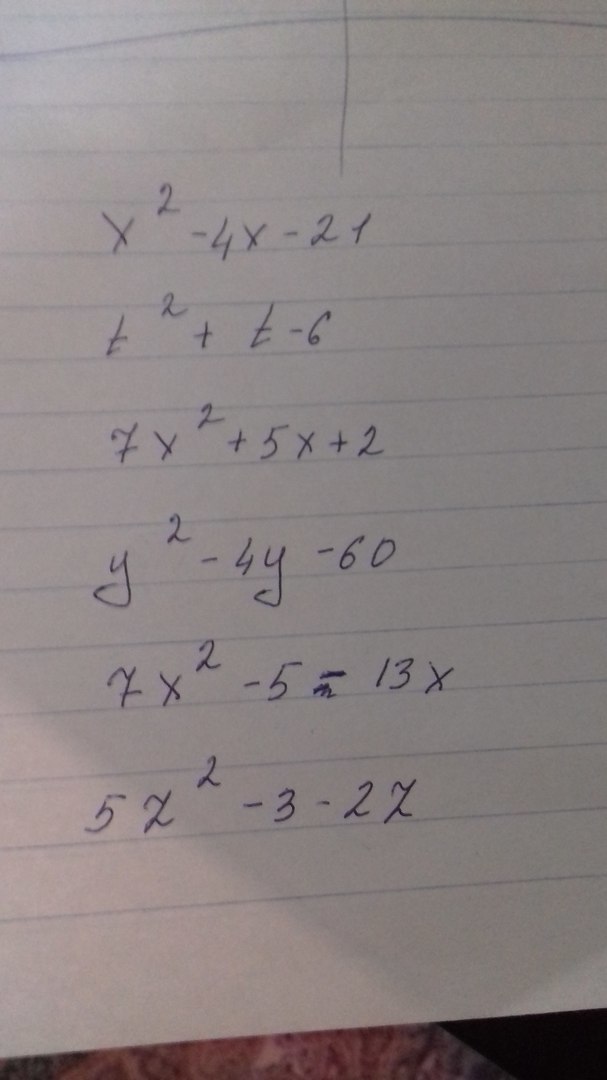 x² - 4x - 21
t² + t - 6
7x² + 5x + 2
y² - 4y - 60
7x² - 5 = 13x
5z² - 3 - 2z